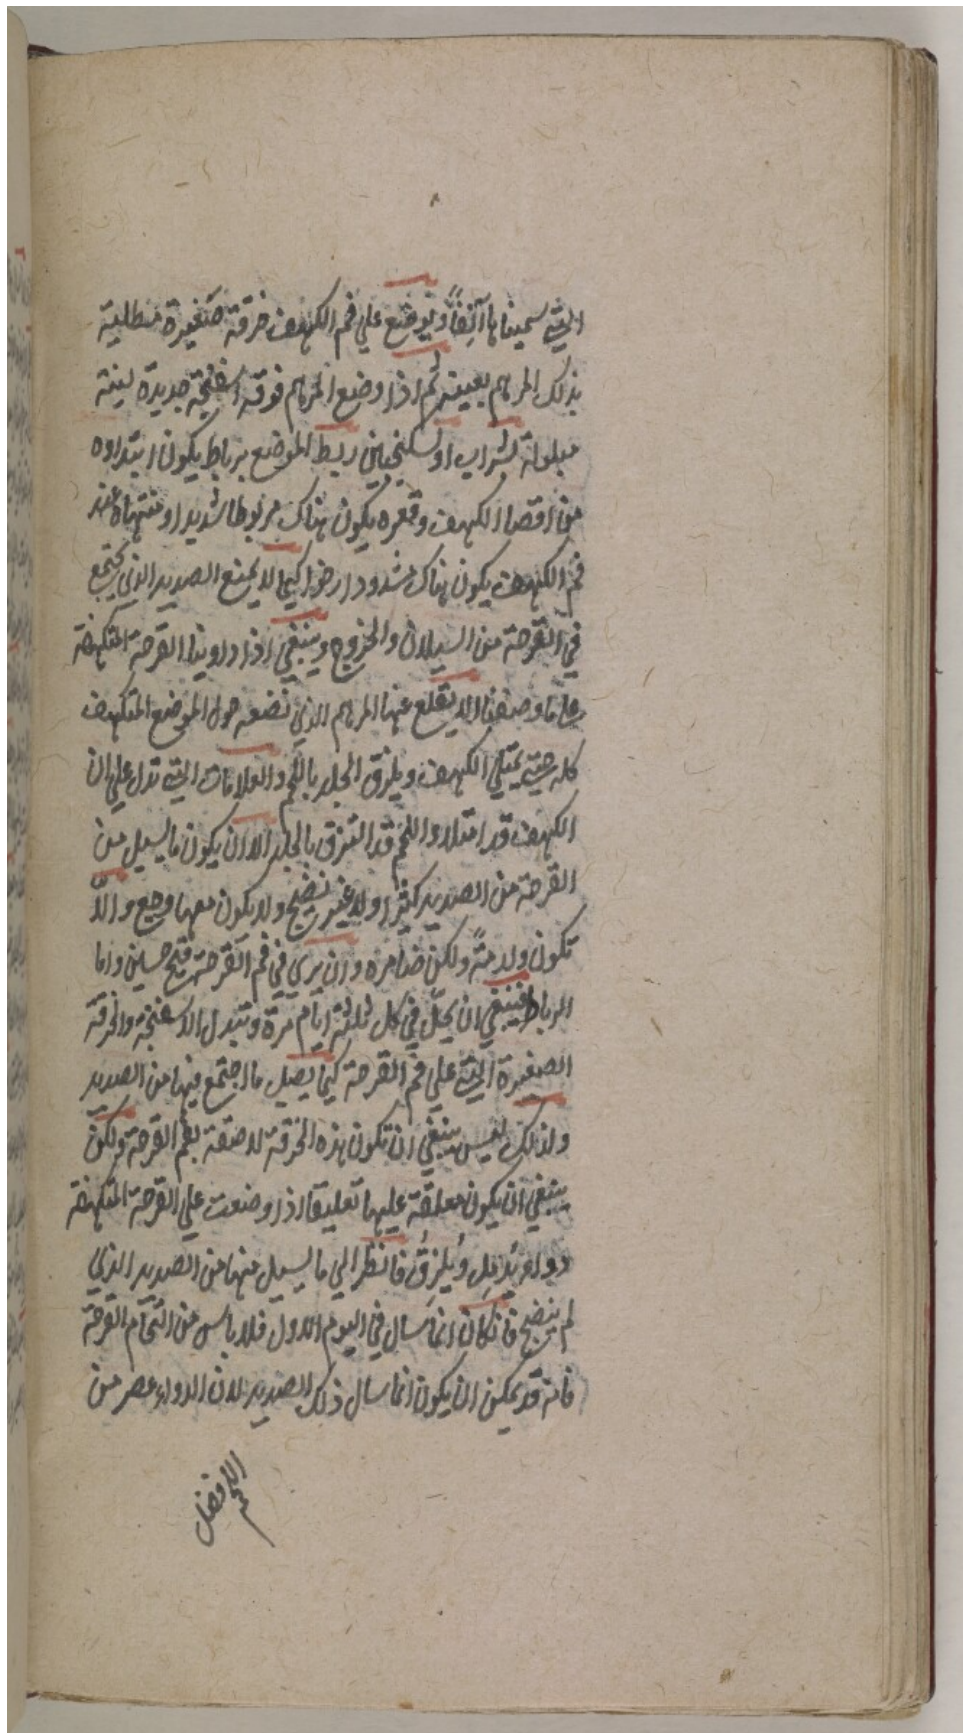 التي سميناها آنفاً ويوضع علي فم الكهف خرقة صغيرة مطلية
بذلك المرهم بعينه ثم اذا وضع المرهم فوقه اسفنجة جديدة لينة
مبلولة بشراب او بسكنجبين ربط الموضع برباط يكون ابتداوه
من اقصا الكهف وقعره يكون هناك مربوطا شديدا ومنتهاه عند
فم الكهف يكون هناك مشدودا رخوا كيما لا يمنع الصديد الذي يجتمع
في القرحة من السيلان والخروج وينبغي اذا داوينا القرحة المتكهفة
علي ما وصفنا الا يقلع عنها المرهم الذي نضعه حول الموضع المتكهف
كله حتي يمتلي الكهف ويلزق الجلد باللحم والعلامات التي تدل علي ان
الكهف قد امتلا واللحم قد التزق بالجلد الا ان يكون ما يسيل من
القرحة من الصديد كثيرا ولا غير نضيج ولا يكون معها وجع والا
تكون ولرمةً ولكن ضامرة وان يري في فم القرحة قيح حسين واما
الرباط فينبغي ان يحلّ في كل ثلثة ايام مرة وتبدل الاسفنجة والخرقة
الصغيرة التي علي فم القرحة كيما يصل ما اجتمع فيها من الصديد
ولذلك ليس ينبغي ان تكون هذه الخرقة لاصقة بفم القرحة ولكن
ينبغي ان يكون معلقة عليها تعليقا اذا وضعت علي القرحة المتكهفة
دواء يُدمِل ويُلزقُ فانظر الي ما يسيل منها من الصديد الذي
لم ينضج فان كان انما سال في اليوم الاول فلا باس من التحام القرحة
فانه قد يمكن ان يكون انما سال ذلك الصديد لان الدواء عصر من
اللحم افضل